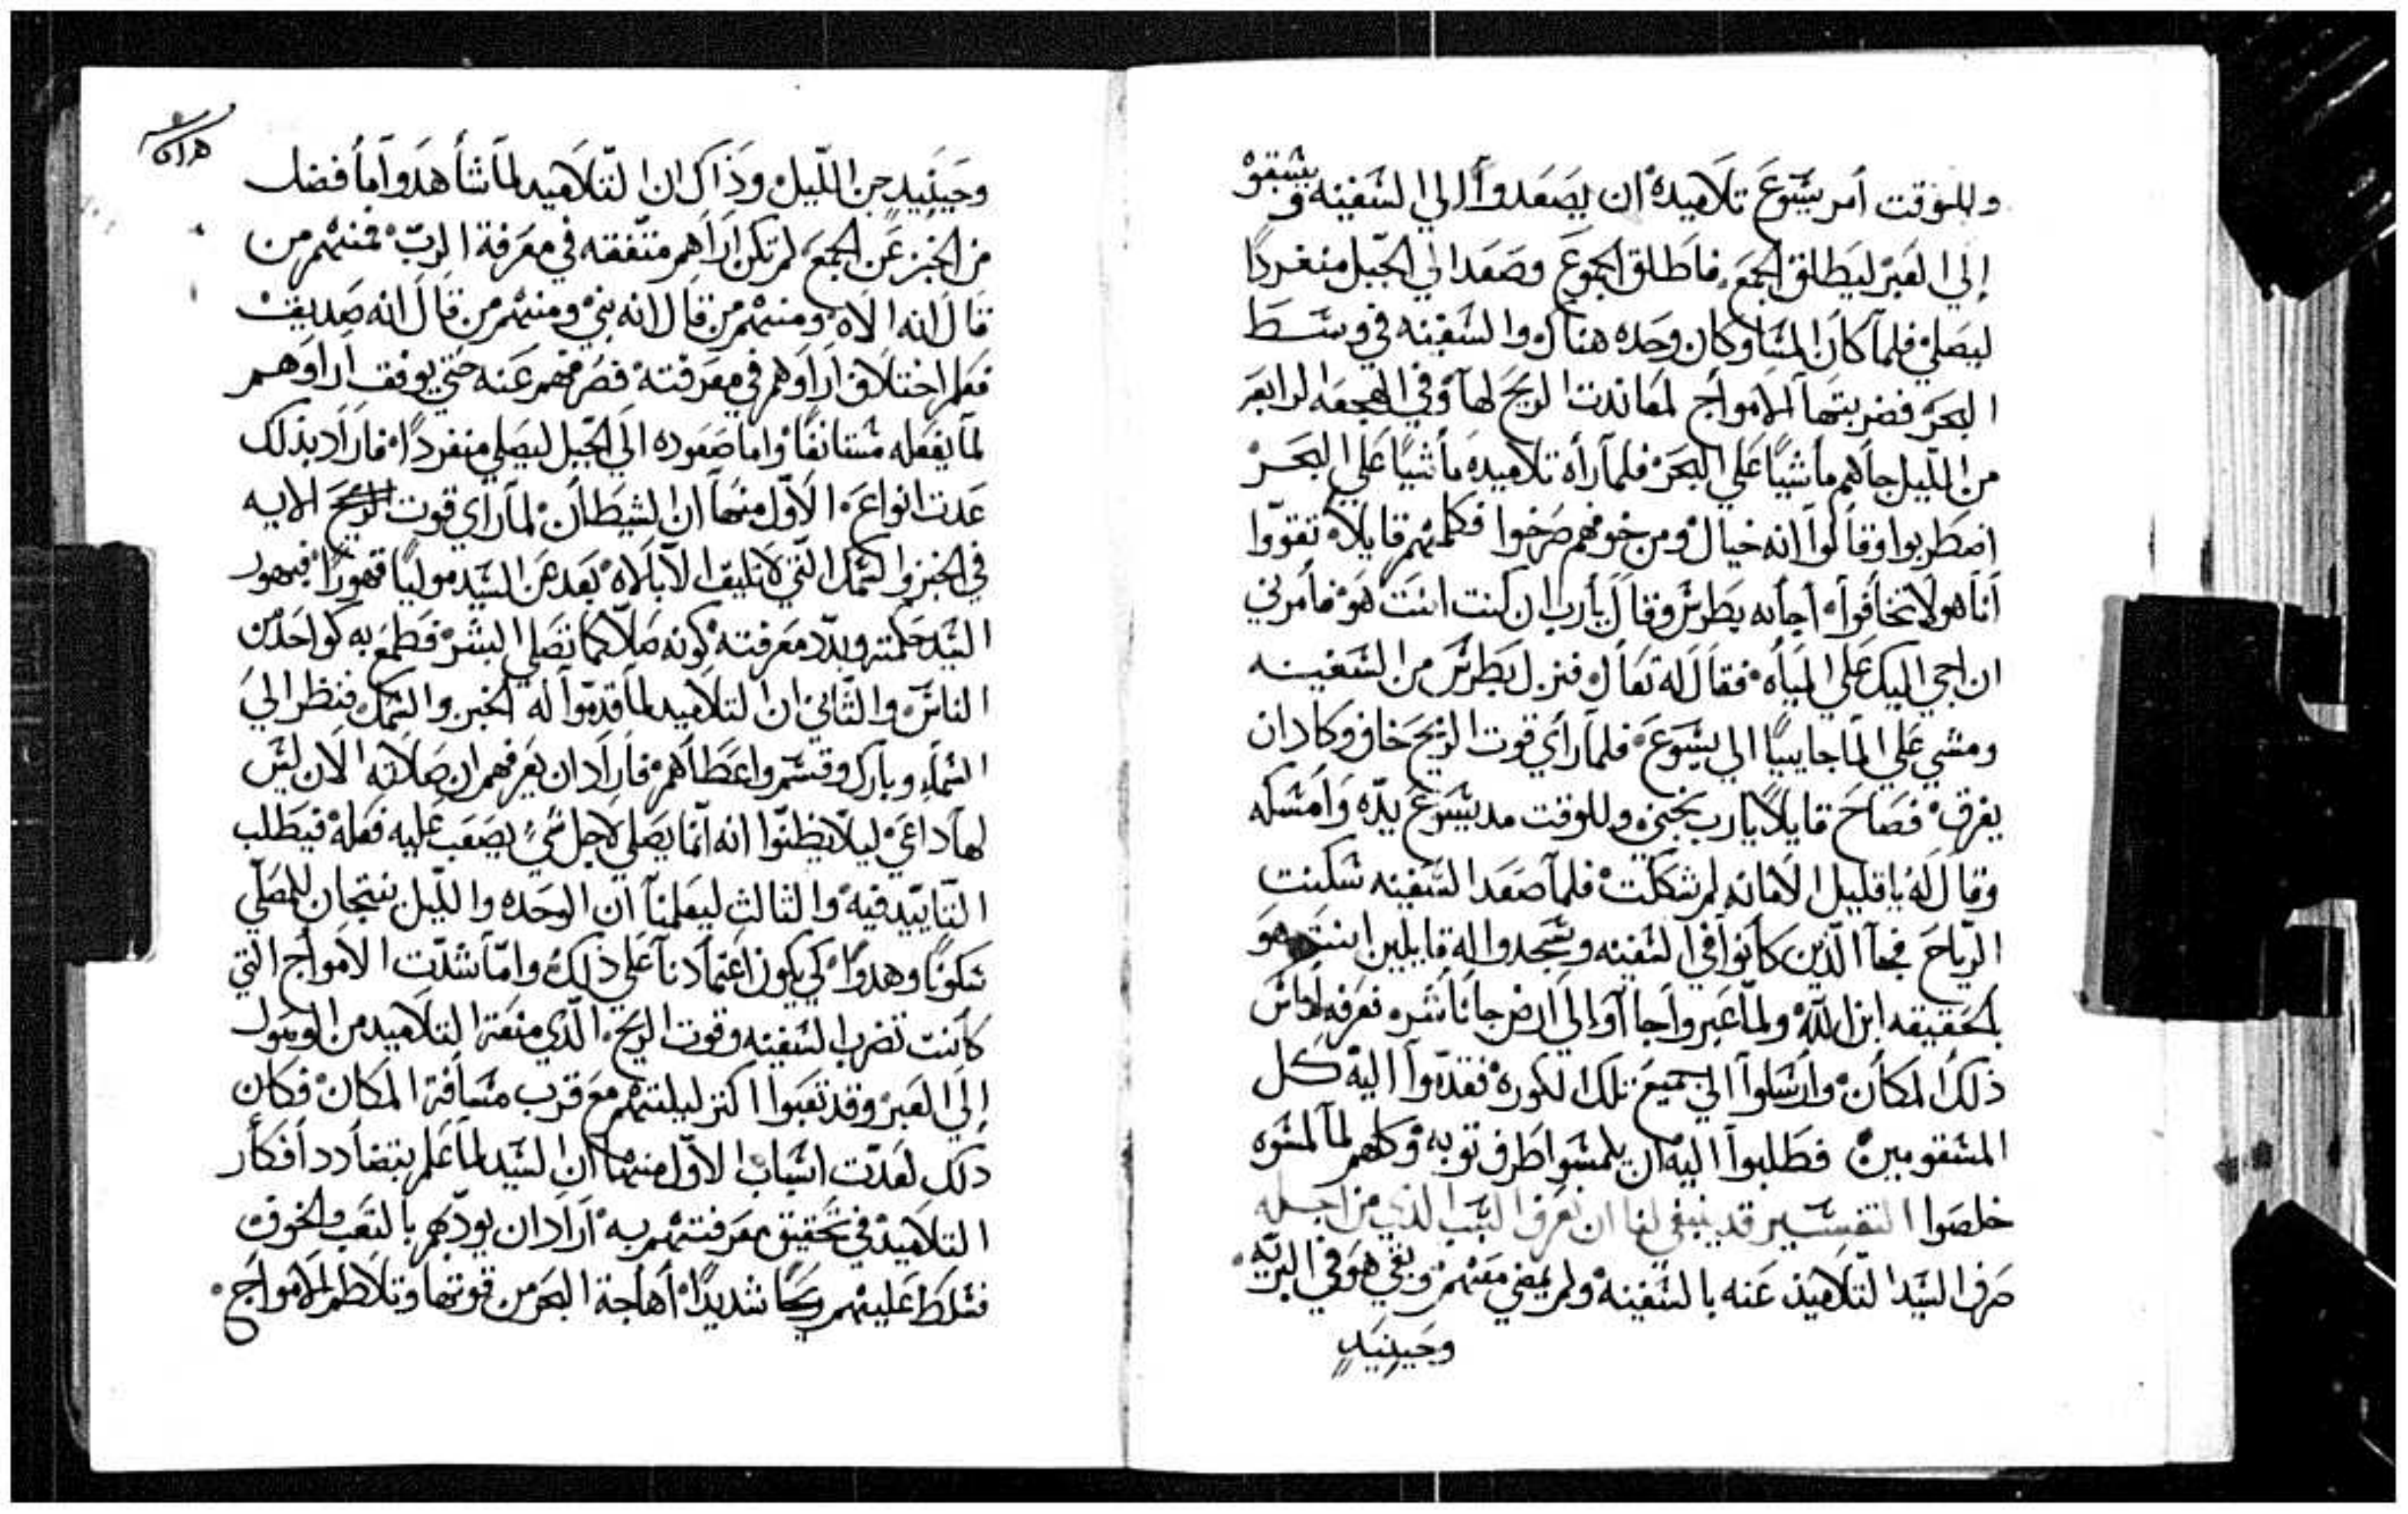 وللوقت أمر يسوع تلاميده ان يصعدوا الي السفينه ويسبقو
إلي العبر ليطلق الجمع فاطلق الجموع وصعد الي الجبل منفردا
ليصلي فلما كان المسا وكان وحده هناك والسفينه في وسط
البحر فضربتها الامواج لمعاندت الريح لها وفي الهجعه الرابعه
من الليل جاهم ماشيا علي البحر فلما رأه تلاميده ماشيا علي البحر
اضطربوا وقالوا انه خيال ومن خوفهم صرخوا فكلمهم قايلا تقووا
أنا هو لا تخافوا أجابه بطرس وقال يارب ان كنت انت هو فأمرني
ان اجي اليك علي المياه فقال له تعال فنزل بطرس من السفينه
ومشي علي الما جاييا الي يسوع فلما رأي قوت الريح خاف وكاد ان
يغرق فصاح قايلا يارب نجني وللوقت مد يسوع يده وامسكه
وقال له ياقليل الامانه لم شككت فلما صعد السفينه سكنت
الرياح فجآ الذين كانوا في السفينه وسجدوا له قايلين انت هو
بالحقيقه ابن الله ولما عبروا جاآوا إلي ارض جاناشره فعرفه اناس
ذلك المكان وارسلوا الي جميع تلك الكوره فقدموا اليه كل
المسقومين فطلبوا اليه ان يلمسوا طرف توبه وكلهم لما لمسوه
خلصوا التفسير قد ينبغي لنا ان نعرف السبب الذي من اجله
صرف السيد التلاميذ عنه بالسفينه ولم يمضي معهم وبقي هو في البريه
وحينيد
وحينيد جن الليل وذاك ان التلاميد لما شاهدوا ما فضل
من الخبز عن الجمع لم تكن اراهم متفقه في معرفة الرب فمنهم من
قال انه الاه ومنهم من قال انه نبي ومنهم من قال انه صديق
فعلم اختلاف اراوهم في معرفته فصرفهم عنه حتي يوفق اراوهم
لما يفعله مستانفا واما صعوده الي الجبل ليصلي منفردا فاراد بذلك
عدت انواع الاول منها ان الشيطان لما راي قوت الايه
في الخبز والسمك التي لا تليق الا بالاه بعد عن السيد موليا قهورا فبهور
السيد حكمته وبدد معرفته كونه صلا كما تصلي البشر فطمع به كواحد من
الناس والثاني ان التلاميد لما قدموا له الخبز والسمك فنظر الي
السماء وبارك وقسم واعطاهم فاراد ان يعرفهم ان صلاته الان ليس
لها داعي ليلا يظنوا انه انما يصلي لاجل شيء يصعب عليه فعله فيطلب
التاييد فيه والثالث ليعلمنا ان الوحده والليل ينتجان للمصلي
سكونا وهدوا كي يكون اعتمادنا علي ذلك واما شدت الامواج التي
كانت تضرب السفينه وقوت الريح الذي منعت التلاميد من الوصول
إلي العبر وقد تعبوا اكثر ليلتهم مع قرب مسافة المكان فكان
دلك لعدت اسباب الاول منها ان السيد لما علم بتضادد أفكار
التلاميد في تحقيق معرفتهم به اراد ان يودبهم بالتعب والخوف
فسلط عليهم ريحا شديدا أهاجة البحر من قوتها وتلاطم الامواج